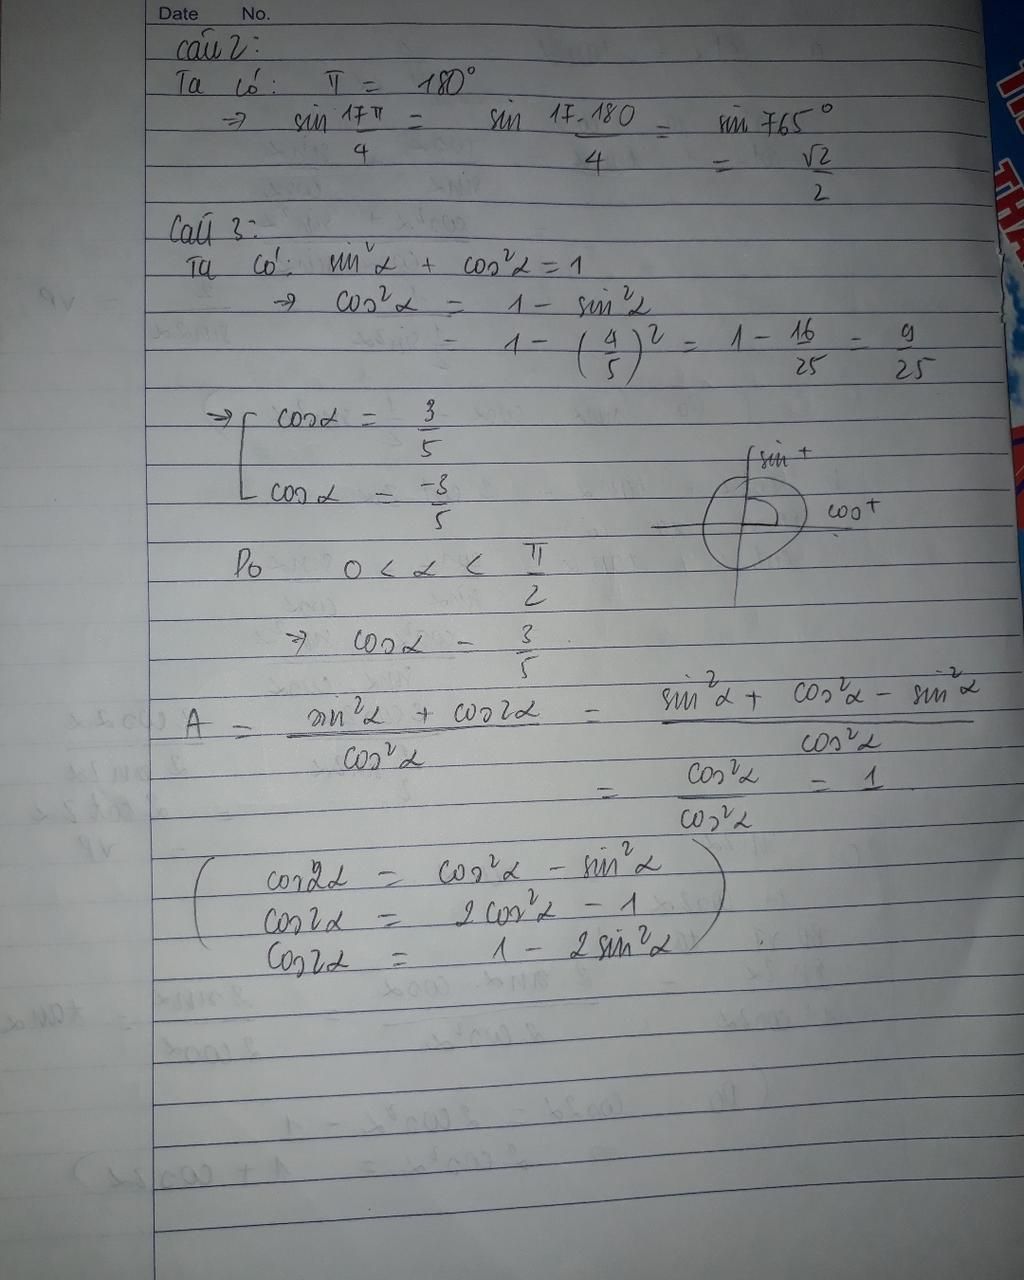 Date No.
Câu 2:
Ta có: π = 180°
⇒ sin 17π/4 = sin 17.180/4 = sin 765°
= √2/2
Câu 3:
Ta có: sin²α + cos²α = 1
⇒ cos²α = 1 - sin²α
= 1 - (4/5)² = 1 - 16/25 = 9/25
⇒ [ cosα = 3/5
cosα = -3/5
sin +
cos +
Do 0 < α < π/2
⇒ cosα = 3/5
A = sin²α + cos2α / cos²α = sin²α + cos²α - sin²α / cos²α
= cos²α / cos²α = 1
( cos2α = cos²α - sin²α
cos2α = 2cos²α - 1
cos2α = 1 - 2sin²α )